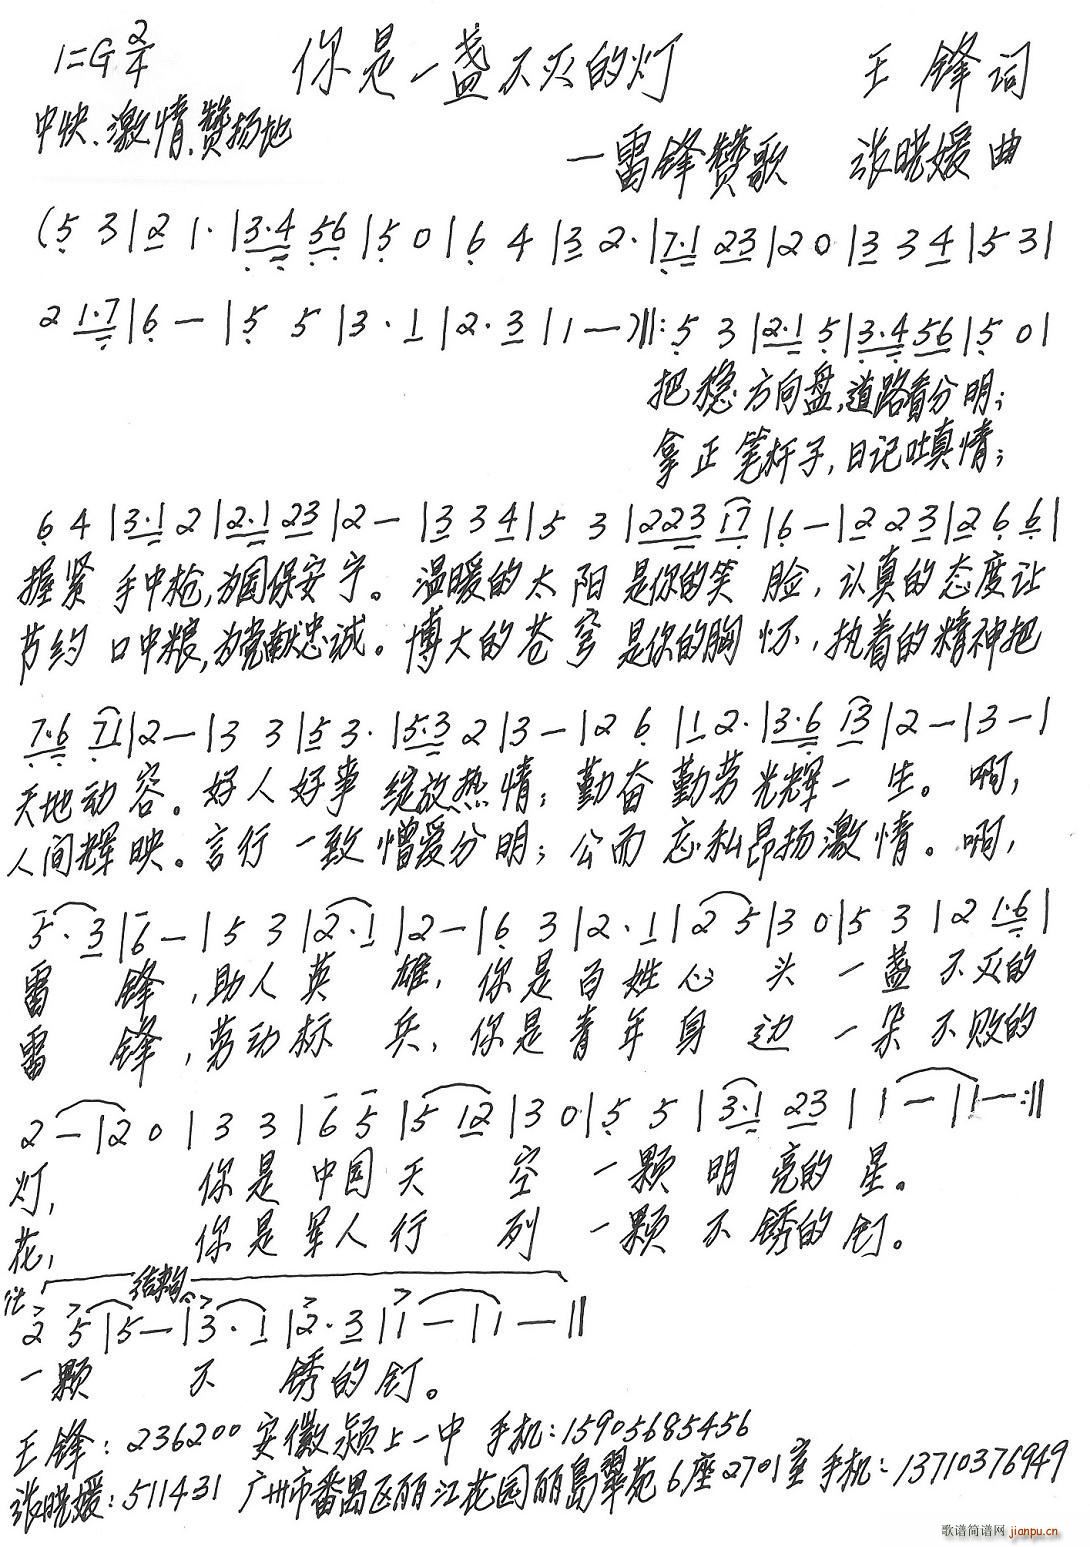 1=G 2/4 你是一盏不灭的灯 王锋词
中快、激情、赞扬地
—雷锋赞歌 张晓媛曲
(5 3|2 1·|3·4 56|5 0|6 4|3 2·|7·1 23|2 0|3 3 4|5 3|
2 1·7|6 —|5 5|3·1|2·3|1—)‖:5 3|2·1 5|3·4 56|5 0|
把稳方向盘,道路看分明;
拿正笔杆子,日记吐真情;
6 4|3·1 2|2·1 23|2 —|3 3 4|5 3|223 17|6 —|2 2 3|2 6 6|
握紧手中枪,为国保安宁。温暖的太阳是你的笑脸,认真的态度让
节约口中粮,为党献忠诚。博大的苍穹是你的胸怀,执着的精神把
7·6 71|2—|3 3|5 3·|5·3 2|3—|2 6|1 2·|3·6 13|2—|3—|
天地动容。好人好事绽放热情;勤奋勤劳光辉一生。啊,
人间辉映。言行一致憎爱分明;公而忘私昂扬激情。啊,
5·3|6—|5 3|2·1|2—|6 3|2·1|2 5|3 0|5 3|2 1·6|
雷锋,助人英雄,你是百姓心头一盏不灭的
雷锋,劳动标兵,你是青年身边一朵不败的
2—|2 0|3 3|6 5|5 12|3 0|5 5|3·1 23|1—|1—:‖
灯,你是中国天空一颗明亮的星。
花,你是军人行列一颗不锈的钉。
结束句
2 5|5—|3·1|2·3|1—|1—‖
一颗不锈的钉。
王锋:236200 安徽颍上一中 手机:15905685456
张晓媛:511431 广州市番禺区丽江花园丽岛翠苑6座2701室 手机:13710376949
歌谱简谱网 jianpu.cn